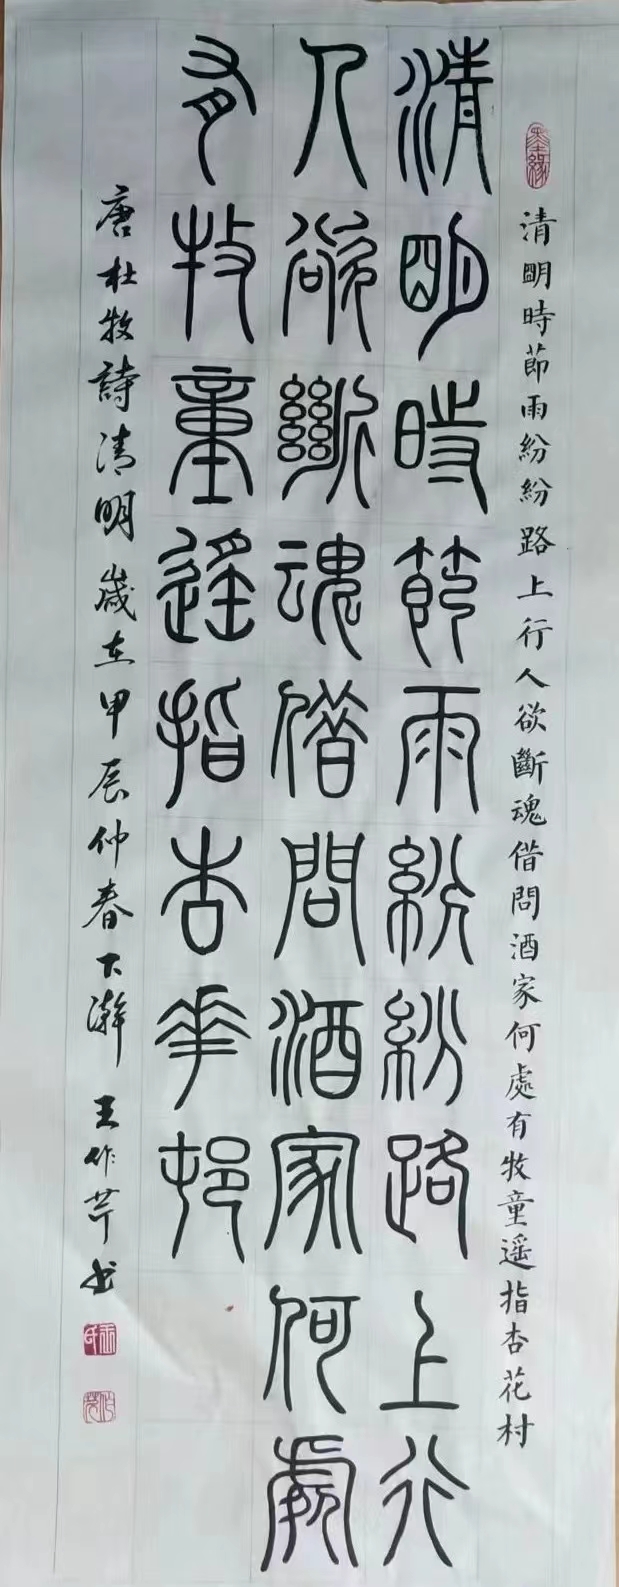 墨缘
清明時節雨紛紛路上行人欲斷魂借問酒家何處有牧童遥指杏花村
清明時節雨紛紛路上行
人欲斷魂借問酒家何處
有牧童遥指杏花邨
唐杜牧詩清明歲在甲辰仲春下澣王作芹书